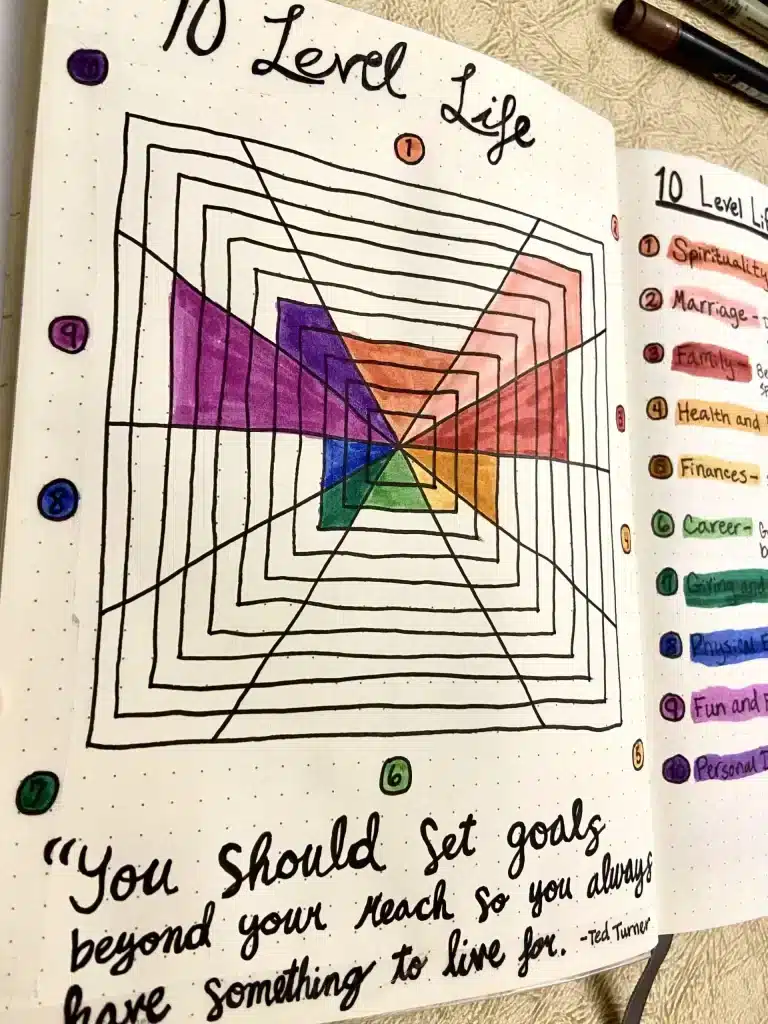 10 Level Life
1
2
3
4
5
6
7
8
9
"You should set goals
beyond your reach so you always
have something to live for. -Ted Turner
10 Level
1 Spirituality
2 Marriage-
3 Family-
4 Health and
5 Finances-
6 Career-
7 Giving and
8 Physical
9 Fun and
10 Personal